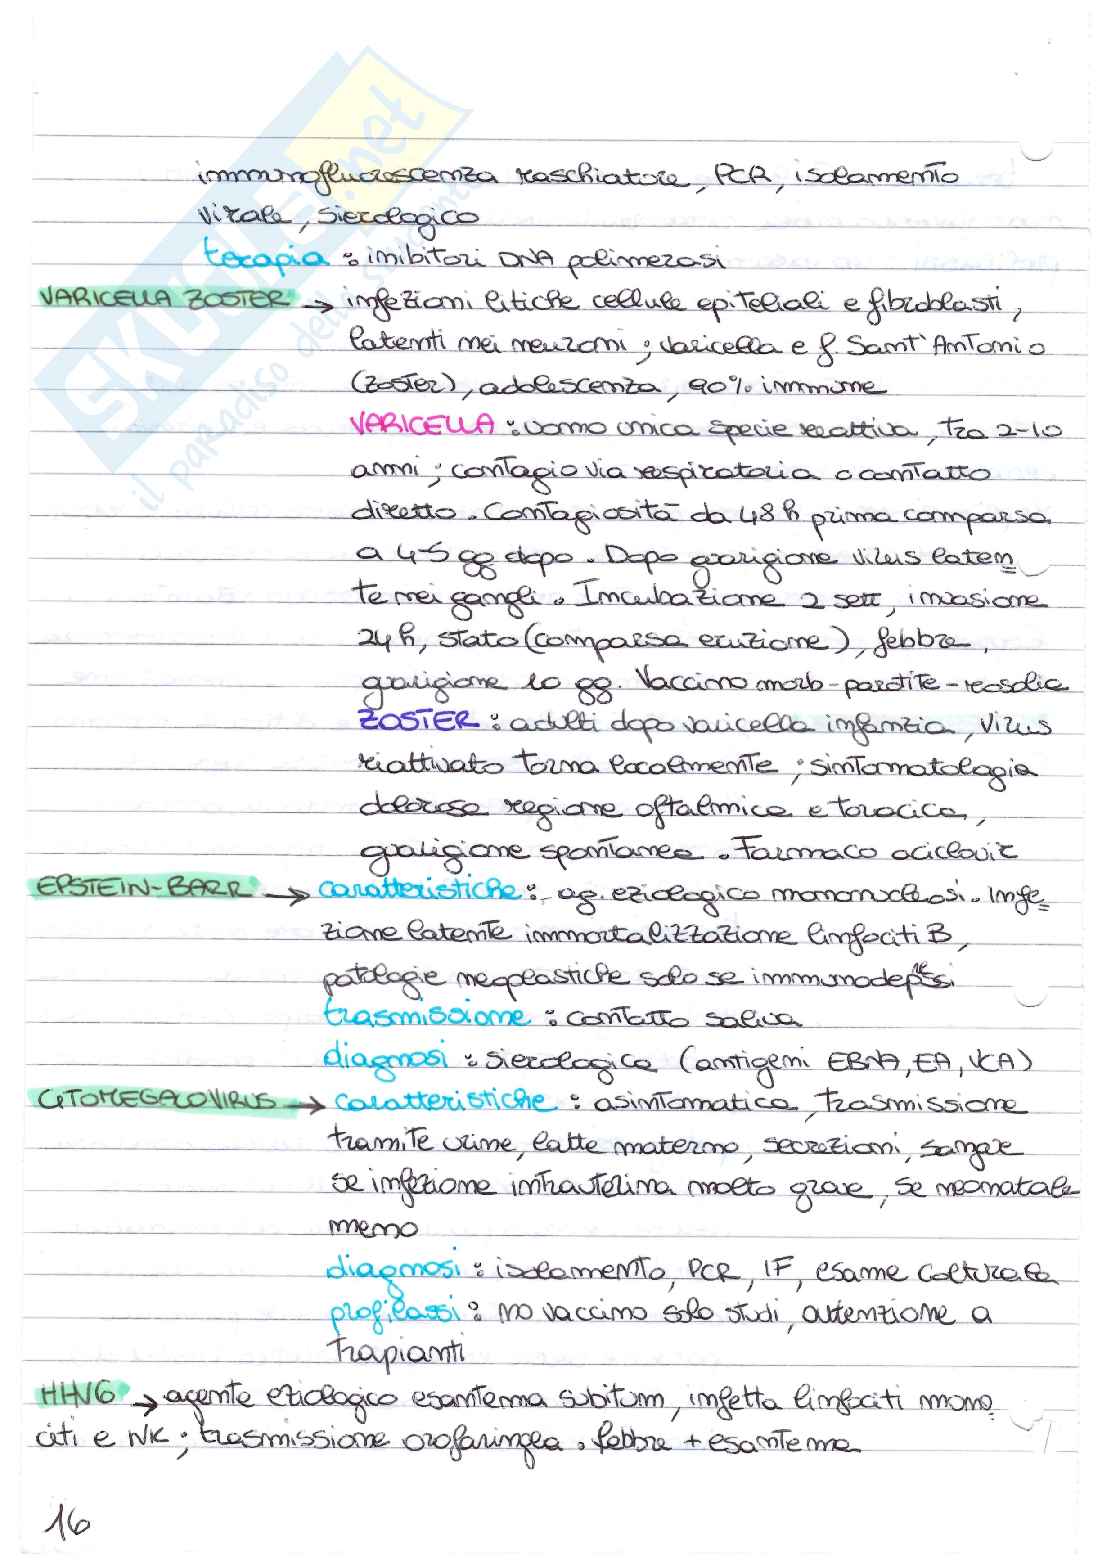 immunofluorescenza raschiatore, PCR, isolamento
virale, sierologico
terapia : inibitori DNA polimerasi
VARICELLA ZOSTER → infezioni litiche cellule epiteliali e fibroblasti,
latenti nei neuroni ; varicella e f. Sant'Antonio
(zoster), adolescenza, 90% immune
VARICELLA : uomo unica specie reattiva, tra 2-10
anni ; contagio via respiratoria o contatto
diretto. Contagiosità da 48 h prima comparsa
a 4-5 gg dopo. Dopo guarigione virus laten
te nei gangli. Incubazione 2 sett, invasione
24 h, stato (comparsa eruzione), febbre,
guarigione 10 gg. Vaccino morb-parotite-rosolia
ZOSTER : adulti dopo varicella infanzia, virus
riattivato torna localmente ; sintomatologia
dolorosa regione oftalmica e toracica,
guarigione spontanea. Farmaco aciclovir
EPSTEIN-BARR → caratteristiche : ag. eziologico mononucleosi. Infe
zione latente immortalizzazione linfociti B,
patologie neoplastiche solo se immunodepressi
trasmissione : contatto saliva
diagnosi : sierologica (antigeni EBNA, EA, VCA)
CITOMEGALOVIRUS → caratteristiche : asintomatica, trasmissione
tramite urine, latte materno, secrezioni, sangue
se infezione intrauterina molto grave, se neonatale
meno
diagnosi : isolamento, PCR, IF, esame colturale
profilassi : no vaccino solo studi, attenzione a
trapianti
HHV6 → agente eziologico esantema subitum, infetta linfociti mono
citi e NK ; trasmissione orofaringea. febbre + esantema
16
SKUOLA.net
il paradiso dello studente